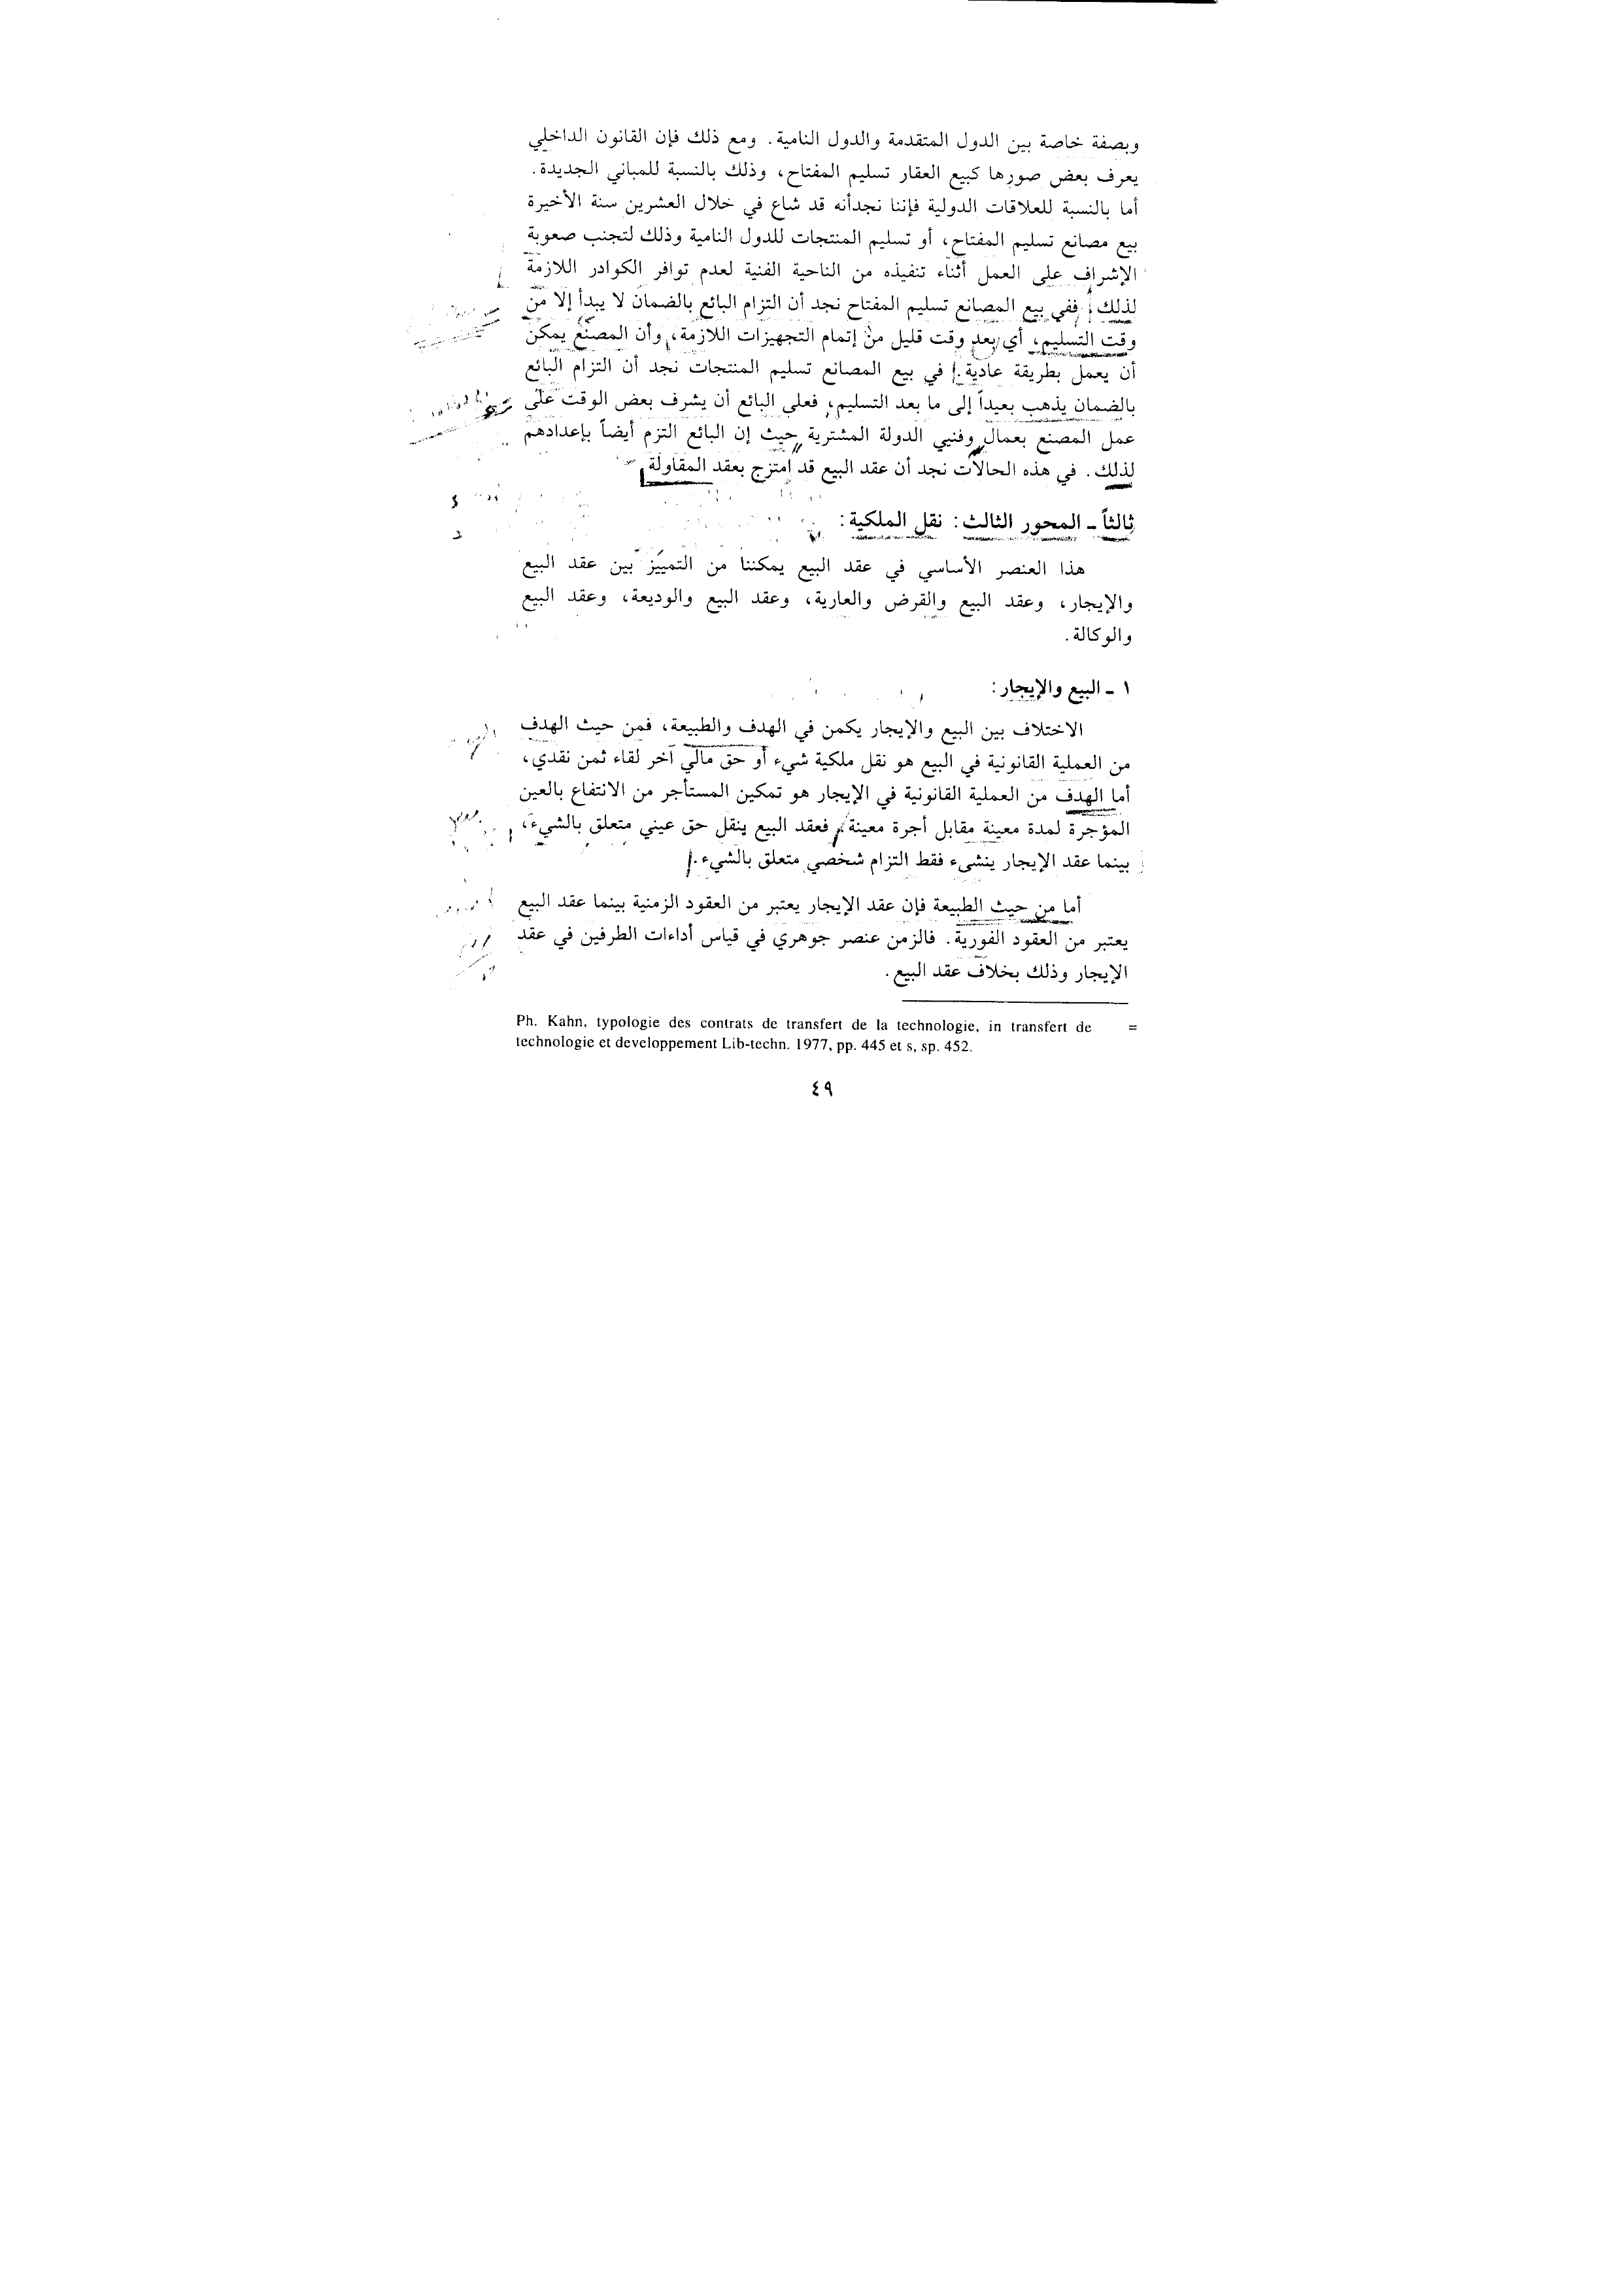 وبصفة خاصة بين الدول المتقدمة والدول النامية. ومع ذلك فإن القانون الداخلي
يعرف بعض صورها كبيع العقار تسليم المفتاح، وذلك بالنسبة للمباني الجديدة.
أما بالنسبة للعلاقات الدولية فإننا نجدأنه قد شاع في خلال العشرين سنة الأخيرة
بيع مصانع تسليم المفتاح، أو تسليم المنتجات للدول النامية وذلك لتجنب صعوبة
الإشراف على العمل أثناء تنفيذه من الناحية الفنية لعدم توافر الكوادر اللازمة
لذلك. ففي بيع المصانع تسليم المفتاح نجد أن التزام البائع بالضمان لا يبدأ إلا من
وقت التسليم، أي بعد وقت قليل من إتمام التجهيزات اللازمة، وأن المصنع يمكن
أن يعمل بطريقة عادية. في بيع المصانع تسليم المنتجات نجد أن التزام البائع
بالضمان يذهب بعيداً إلى ما بعد التسليم، فعلى البائع أن يشرف بعض الوقت على
عمل المصنع بعمال وفنيي الدولة المشترية حيث إن البائع التزم أيضاً بإعدادهم
لذلك. في هذه الحالات نجد أن عقد البيع قد امتزج بعقد المقاولة
ثالثاً ـ المحور الثالث: نقل الملكية:
هذا العنصر الأساسي في عقد البيع يمكننا من التمييز بين عقد البيع
والإيجار، وعقد البيع والقرض والعارية، وعقد البيع والوديعة، وعقد البيع
والوكالة.
١ ـ البيع والإيجار:
الاختلاف بين البيع والإيجار يكمن في الهدف والطبيعة، فمن حيث الهدف
من العملية القانونية في البيع هو نقل ملكية شيء أو حق مالي آخر لقاء ثمن نقدي،
أما الهدف من العملية القانونية في الإيجار هو تمكين المستأجر من الانتفاع بالعين
المؤجرة لمدة معينة مقابل أجرة معينة، فعقد البيع ينقل حق عيني متعلق بالشيء،
بينما عقد الإيجار ينشىء فقط التزام شخصي متعلق بالشيء.
أما من حيث الطبيعة فإن عقد الإيجار يعتبر من العقود الزمنية بينما عقد البيع
يعتبر من العقود الفورية. فالزمن عنصر جوهري في قياس أداءات الطرفين في عقد
الإيجار وذلك بخلاف عقد البيع.
Ph. Kahn, typologie des contrats de transfert de la technologie, in transfert de =
technologie et developpement Lib-techn. 1977, pp. 445 et s, sp. 452.
٤٩